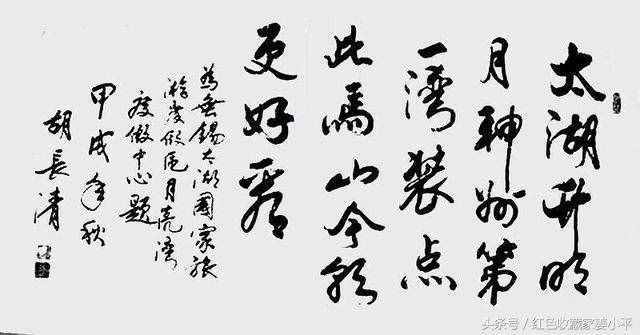 太湖升明
月神州第
一湾装点
此馬山今朝
更好看
為無錫太湖國家旅
遊度假區月亮湾
度假中心題
甲戌年秋
胡長清
头条号/红色收藏家姜小平